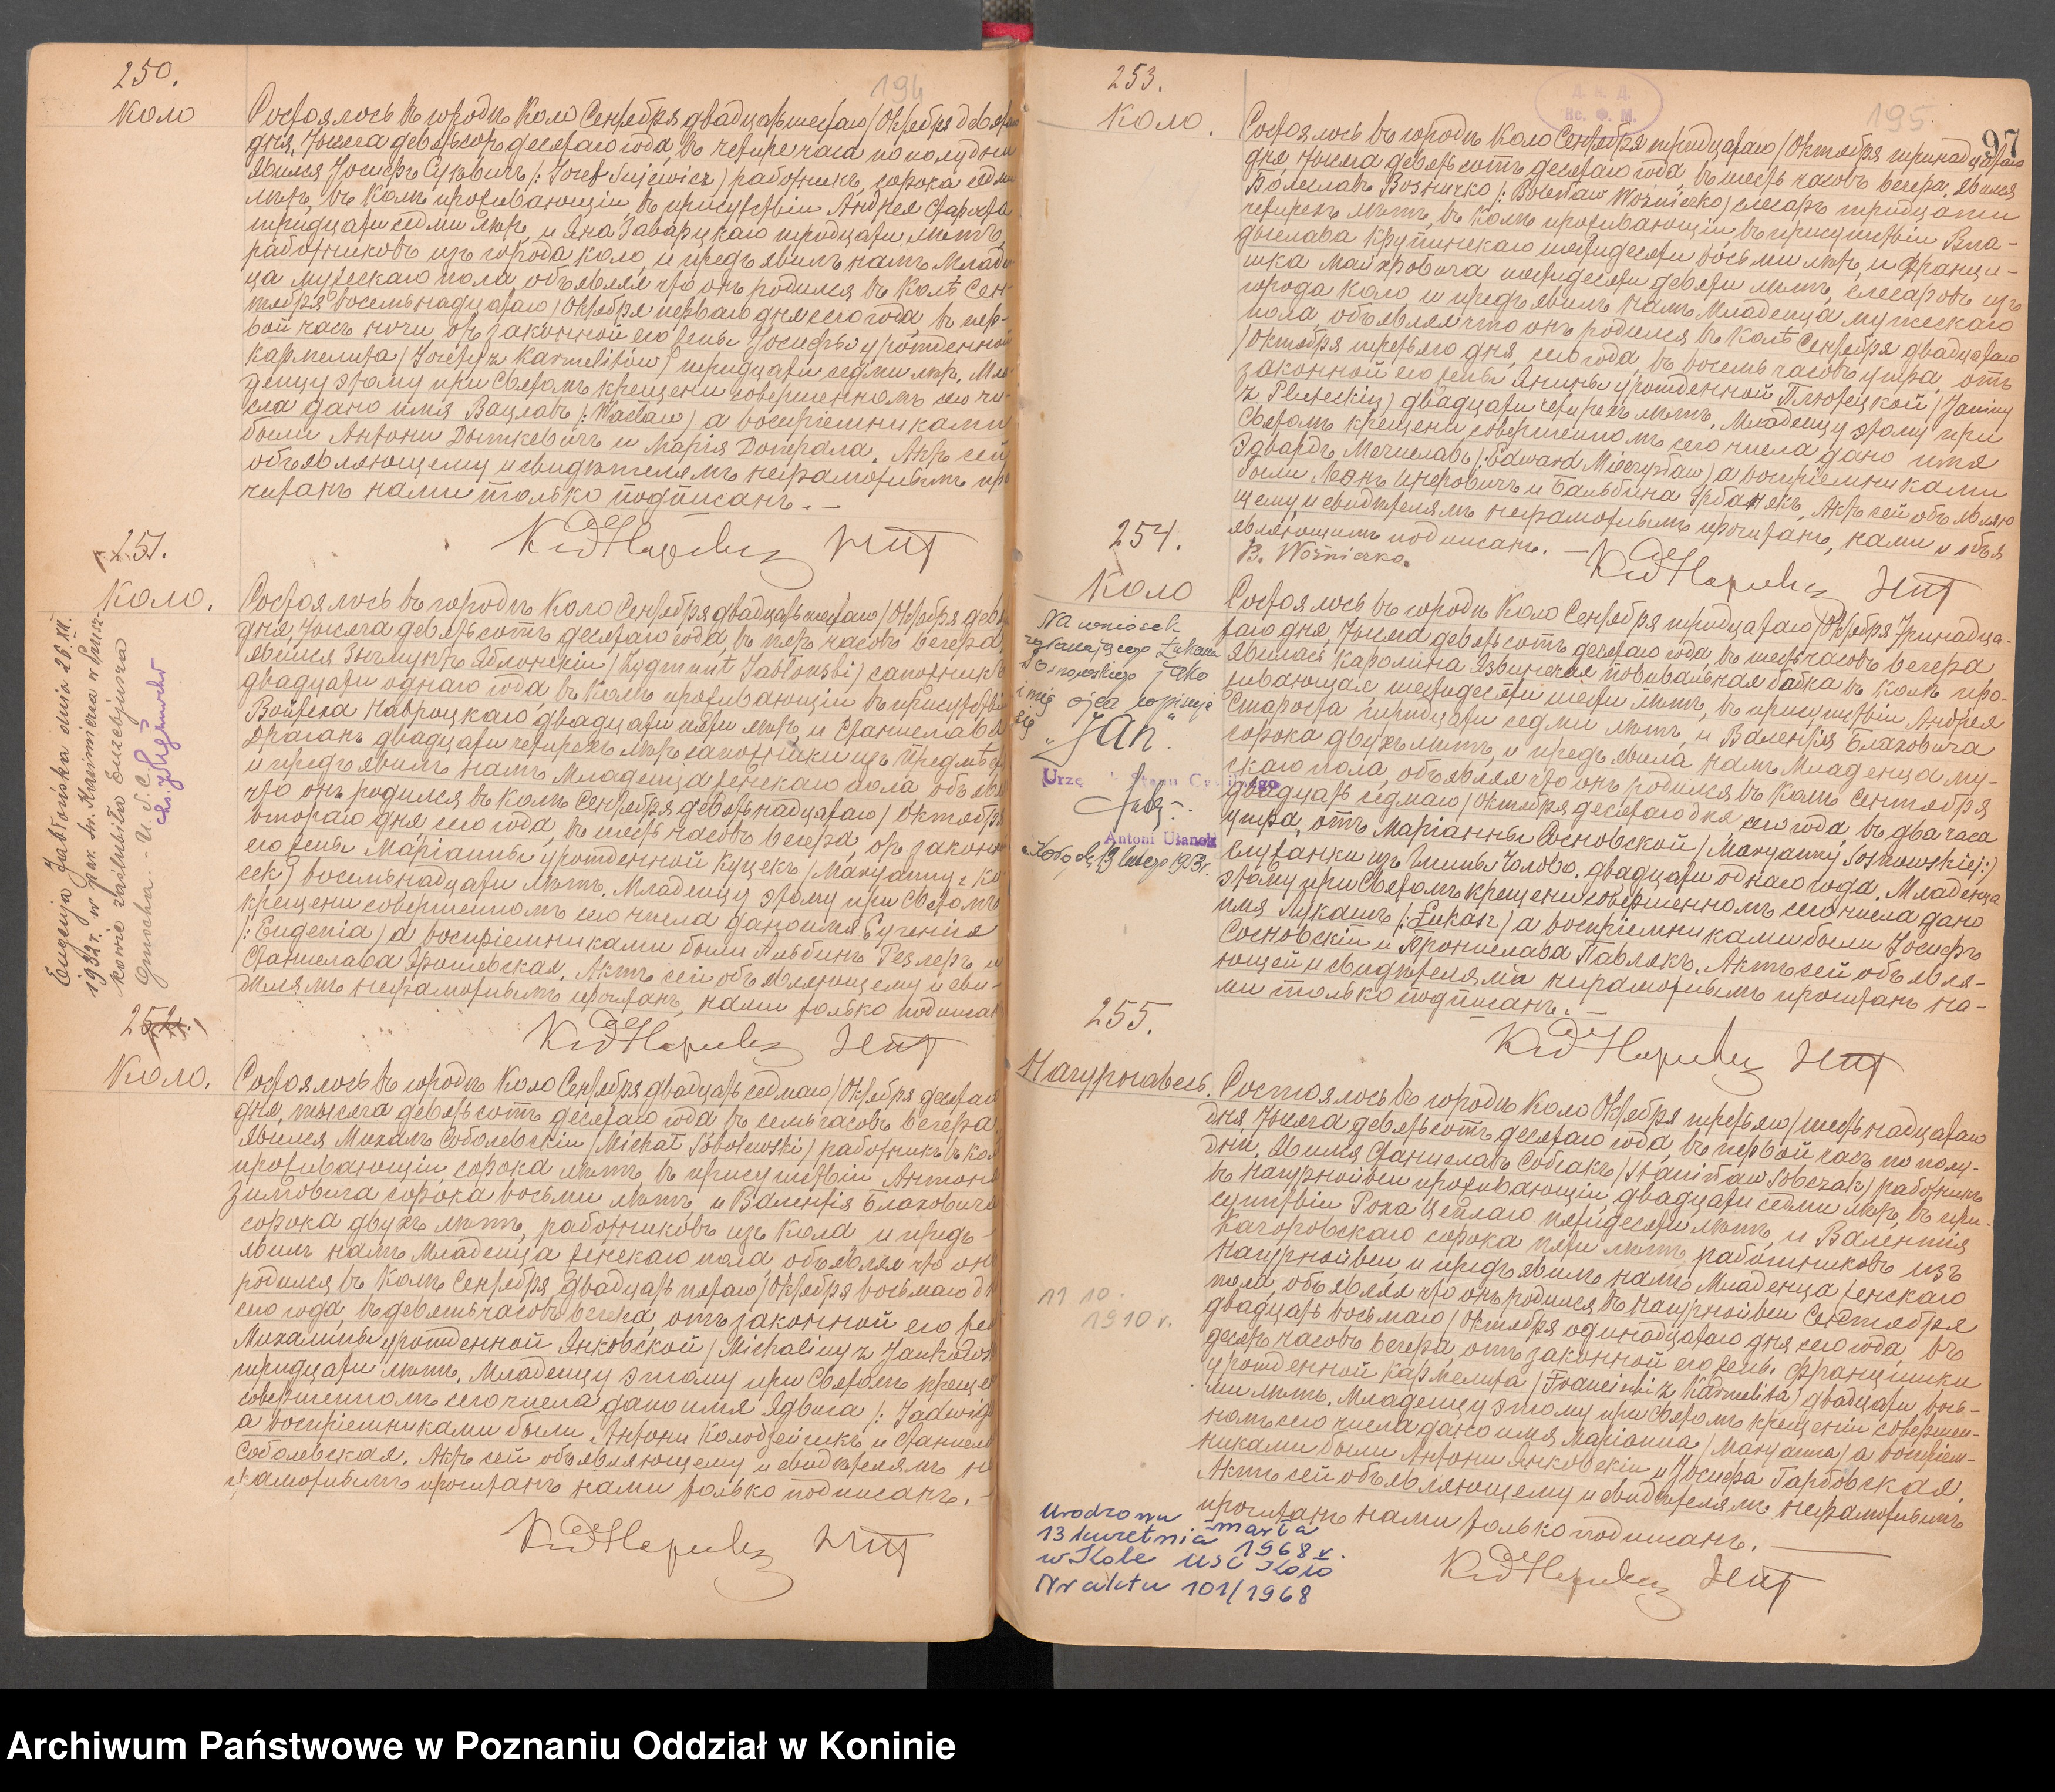 194
250.
Коло
Состоялось въ городѣ Коло Сентября двадцать шестаго / Октября девятаго
дня, тысяча девятьсотъ десятаго года, въ четыре часа по полудни
явился Іосифъ Суевичъ /: Józef Sujewicz / работникъ, сорока седми
лѣтъ, въ Колѣ проживающій, въ присутствіи Андрея Старосты
тридцати седми лѣтъ, и Яна Заварцкаго тридцати лѣтъ,
работниковъ изъ города Коло, и предъявилъ намъ Младен
ца мужескаго пола, объявляя что онъ родился въ Колѣ Сен-
тября восемьнадцатаго / Октября перваго дня сего года, въ пер-
вой часъ ночи отъ законной его жены Іосифы урожденной
Кармелита / Józefy z Karmelitów / тридцати седми лѣтъ. Мла
денцу этому при Святомъ крещеніи совершенномъ сего чи-
сла дано имя Вацлавъ /: Wacław / а воспріемниками
были Антони Дымкевичъ и Марія Доперала. Актъ сей
объявляющему и свидѣтелямъ неграмотнымъ про
читанъ нами только подписанъ. —
251.
Коло.
Состоялось въ городѣ Коло Сентября двадцать шестаго / Октября девя
дня, тысяча девятьсотъ десятаго года, въ пять часовъ вечера,
явился Зыгмунтъ Яблонскій / Zygmunt Jabłoński / сапожникъ
двадцати одного года, въ Колѣ проживающій въ присутствіи
Войтеха Навроцкаго двадцати пяти лѣтъ, и Станислава
Драганъ двадцати четырехъ лѣтъ сапожники изъ Предмѣст
и предъявилъ намъ Младенца женскаго пола объявля
что онъ родился въ Колѣ Сентября девятьнадцатаго / Октября
втораго дня сего года, въ шесть часовъ вечера, отъ законной
его жены Маріанны урожденной Куцекъ / Maryanny z Ku
cek / восемьнадцати лѣтъ. Младенцу этому при Святомъ
крещеніи совершенномъ сего числа дано имя Евгенія
/: Eugenia / а воспріемниками были Альбинъ Реслеръ и
Станислава Грошевская. Актъ сей объявляющему и сви-
дѣтелямъ неграмотнымъ прочитанъ, нами только подписан
Eugenja Jabłońska dnia 26.XII.
1932 r. w par. św. Kazimierza w
Gnocha. - U. S. C.
252.
Коло.
Состоялось въ городѣ Коло Сентября двадцать седмаго / Октября десятаго
дня, тысяча девятьсотъ десятаго года въ семь часовъ вечера,
явился Михалъ Соболевскій / Michał Sobolewski / работникъ въ Кол
проживающій, сорока лѣтъ, въ присутствіи Антона
Зимовича сорока восьми лѣтъ, и Валентія Блаховича
сорока двухъ лѣтъ, работниковъ изъ Кола, и предъ-
явилъ намъ Младенца женскаго пола, объявляя что он
родился въ Колѣ Сентября двадцать пятаго / Октября восьмаго дн
сего года, въ девять часовъ вечера, отъ законной его жен
Михалины урожденной Янковской / Michaliny z Jankows
тридцати лѣтъ. Младенцу этому при Святомъ креще
совершенномъ сего числа дано имя Ядвига /: Jadwiga
а воспріемниками были Антони Колодзейчикъ и Станисла
Соболевская. Актъ сей объявляющему и свидѣтелямъ не
грамотнымъ прочитанъ нами только подписанъ. —
195
97
253.
Коло.
Состоялось въ городѣ Коло Сентября тридцатаго / Октября тринадцатаго
дня, тысяча девятьсотъ десятаго года, въ шесть часовъ вечера, явился
Болеславъ Возничко /: Bolesław Woźniczko / слесарь тридцати
четырехъ лѣтъ, въ Колѣ проживающій въ присутствіи Вла-
дыслава Крупинскаго пятидесяти восьми лѣтъ, и Франци-
шка Майхровича пятидесяти девяти лѣтъ, слесаровъ изъ
города Коло и предъявилъ намъ Младенца мужескаго
пола, объявляя что онъ родился въ Колѣ Сентября двадцатаго
/ Октября третьяго дня, сего года, въ восемь часовъ утра, отъ
законной его жены Янины урожденной Плютецкой / Janiny
z Pluteckiy / двадцати четырехъ лѣтъ. Младенцу этому при
Святомъ крещеніи совершенномъ сего числа дано имя
Эдвардъ Мечиславъ /: Edward Mieczysław / а воспріемниками
были Леонъ и Бальбина Урбанякъ. Актъ сей объявляю
щему, и свидѣтелямъ неграмотнымъ прочитанъ, нами и объя
вляющимъ подписанъ. —
B. Woźniczko.
254.
Коло
Состоялось въ городѣ Коло Сентября тридцатаго / Октября Тринадца-
таго дня, тысяча девятьсотъ десятаго года, въ шесть часовъ вечера
явилась Каролина Язвинская повивальная бабка въ Колѣ про-
живающая шестидесяти шести лѣтъ, въ присутствіи Андрея
Староста тридцати седми лѣтъ, и Валентія Блаховича
сорока двухъ лѣтъ, и предъявила намъ Младенца му-
скаго пола, объявляя что онъ родился въ Колѣ Сентября
двадцать седмаго / Октября десятаго дня, сего года, въ два часа
утра, отъ Маріанны Сосновской / Maryanny Sosnowskiej :/
служанки изъ Гмины Чолово, двадцати одного года. Младенцу
этому при Святомъ крещеніи совершенномъ сего числа дано
имя Лукашъ /: Łukasz / а воспріемниками были Іосифъ
Сосновскій и Брониславa Павлякъ. Актъ сей объявля-
ющей и свидѣтелямъ неграмотнымъ прочитанъ на-
ми только подписанъ. —
Na wniosek
zgłaszającego Łukasza
Sosnowskiego jako
imię ojca wpisuje
się
„Jan".
Urzę Stanu Cywilnego
Antoni Ułanek
255.
Нагурнавесь.
Состоялось въ городѣ Коло Октября третьяго / шестьнадцатаго
дня, тысяча девятьсотъ десятаго года, въ первой часъ по полу-
дни, явился Станиславъ Собчакъ / Stanisław Sobczak / работникъ
въ Нагурнойвси проживающій, двадцати седми лѣтъ, въ при-
сутствіи Роха Цеплаго пятидесяти лѣтъ, и Валентія
Качоровскаго сорока пяти лѣтъ, работниковъ изъ
Нагурнойвси, и предъявилъ намъ Младенца женскаго
пола, объявляя что онъ родился въ Нагурнойвси Сентября
двадцать восьмаго / Октября одинадцатаго дня сего года въ
десять часовъ вечера, отъ законной его жены Францишки
урожденной Кармелита / Franciszki z Karmelita / двадцати вось-
ми лѣтъ. Младенцу этому при Святомъ крещеніи совершен-
номъ сего числа дано имя Маріанна / Maryanna / а воспріем-
никами были Антони Янковскій и Іосифа Гарбовская.
Актъ сей объявляющему и свидѣтелямъ неграмотнымъ
прочитанъ нами только подписанъ. —
11 10.
1910 r.
zmarła
13 kwietnia 1968 r.
w Kole USC Koło
Nr aktu 101/1968
Archiwum Państwowe w Poznaniu Oddział w Koninie